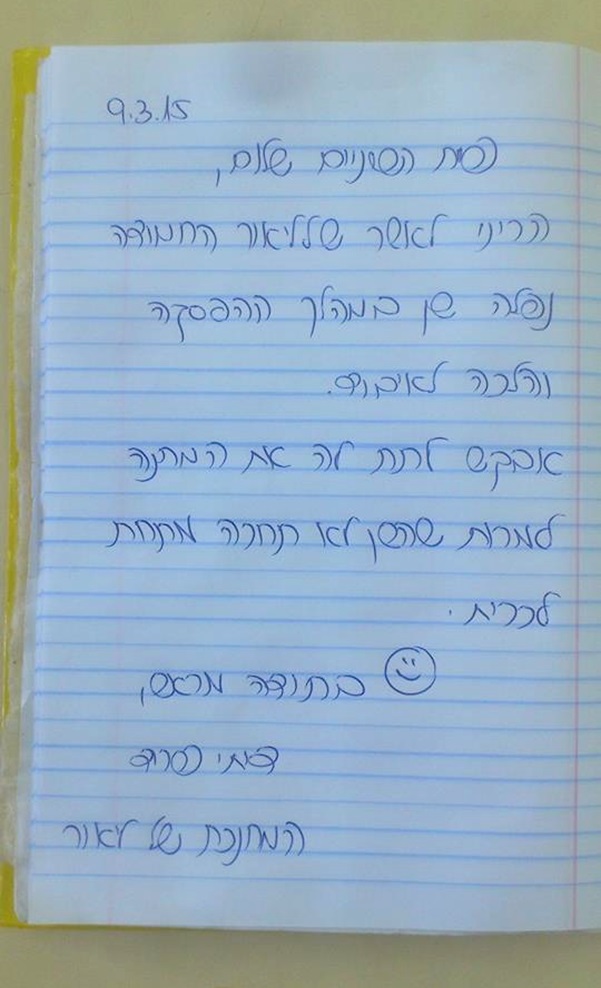 9.3.15
פיית השיניים שלום,
הריני לאשר שלליאור החמודה
נפלה שן במהלך ההפסקה
והלכה לאיבוד.
אבקש לתת לה את המתנה
למרות שהשן לא תחכה מתחת
לכרית.
בתודה מראש,
המחנכת של ליאור